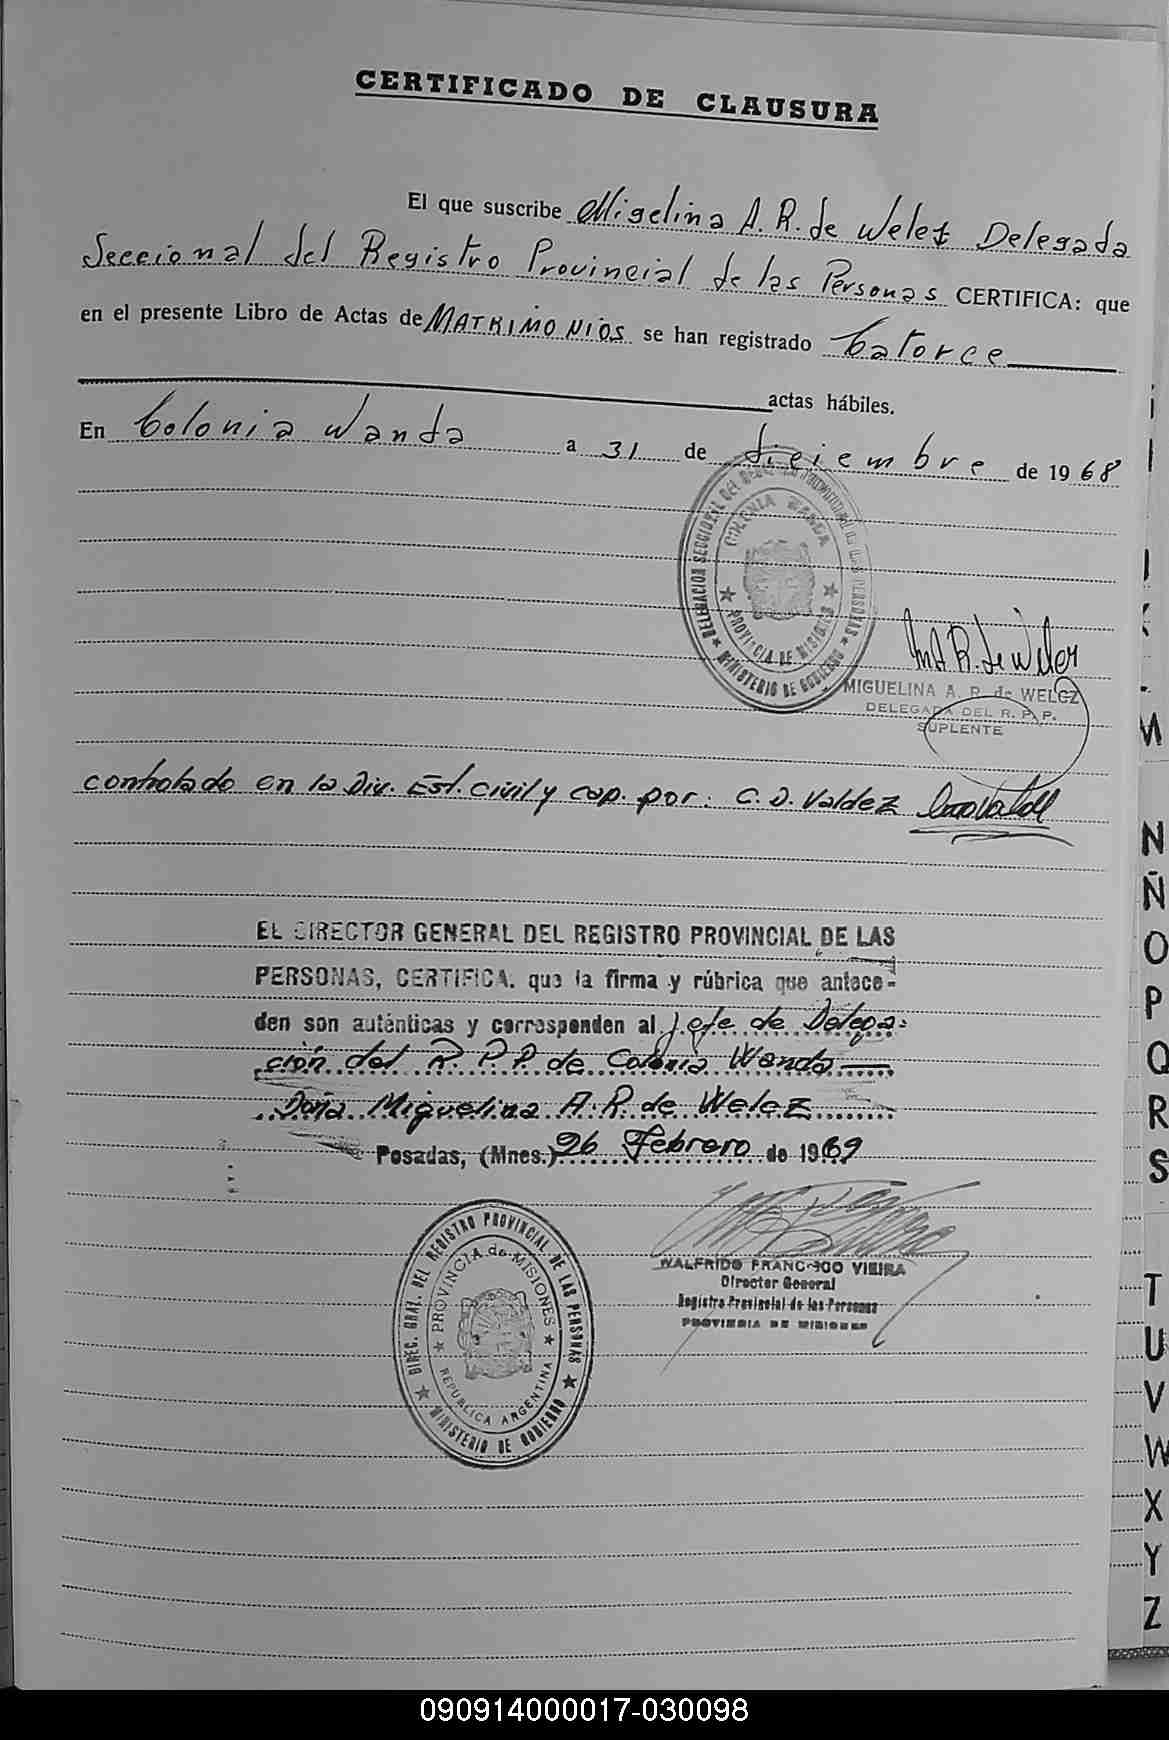 CERTIFICADO DE CLAUSURA
El que suscribe Migelina A. R. de Welez Delegada
Seccional del Registro Provincial de las Personas CERTIFICA: que
en el presente Libro de Actas de MATRIMONIOS se han registrado Catorce
actas hábiles.
En Colonia Wanda a 31 de diciembre de 1968
DELEGACION SECCIONAL DEL REGISTRO PROVINCIAL DE LAS PERSONAS
COLONIA WANDA
PROVINCIA DE MISIONES
MINISTERIO DE GOBIERNO
MIGUELINA A. R. de WELEZ
DELEGADA DEL R. P. P.
SUPLENTE
controlado en la Div. Est. Civil y Cap. por: C. D. Valdez
EL DIRECTOR GENERAL DEL REGISTRO PROVINCIAL DE LAS
PERSONAS, CERTIFICA. que la firma y rúbrica que antece-
den son auténticas y corresponden al Jefe de Delega-
ción del R. P. P. de Colonia Wanda
Doña Miguelina A. R. de Welez
Posadas, (Mnes.) 26 Febrero de 1969
DIREC. GRAL. DEL REGISTRO PROVINCIAL DE LAS PERSONAS
PROVINCIA de MISIONES
REPUBLICA ARGENTINA
MINISTERIO DE GOBIERNO
WALFRIDO FRANCISCO VIEIRA
Director General
Registro Provincial de las Personas
PROVINCIA DE MISIONES
M
N
Ñ
O
P
Q
R
S
T
U
V
W
X
Y
Z
090914000017-030098